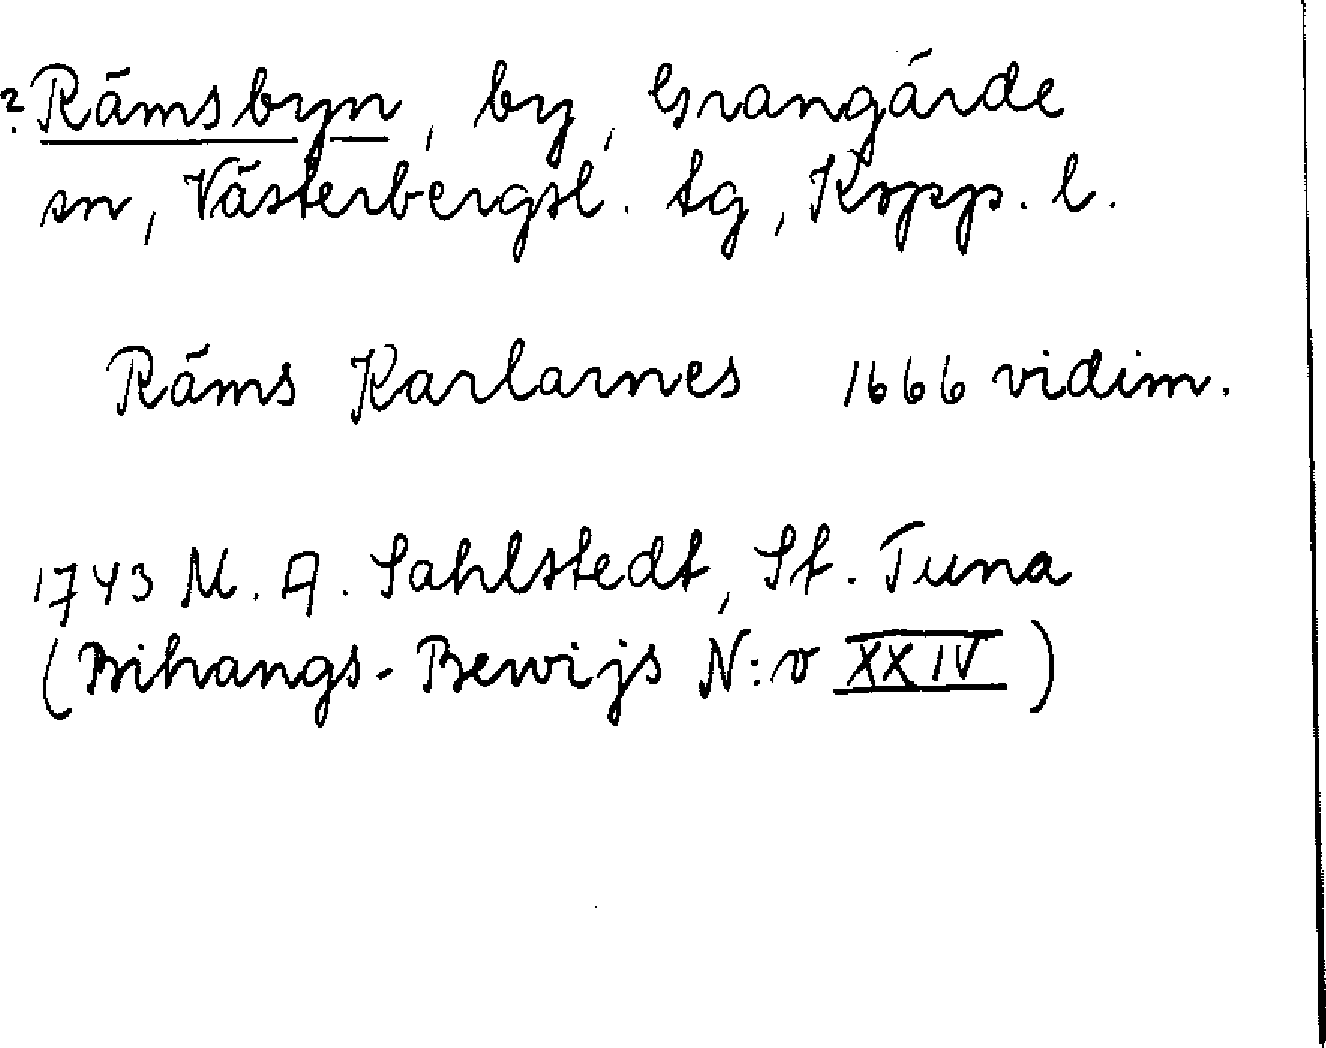 ? Rämsbyn, by, Grangärde
sn, Västerbergsl. tg, Kopp. l.
Räms Karlarnes 1666 vidim.
1743 M. A. Sahlstedt, St. Tuna
(Bihangs-Bewijs N:o XXIV)